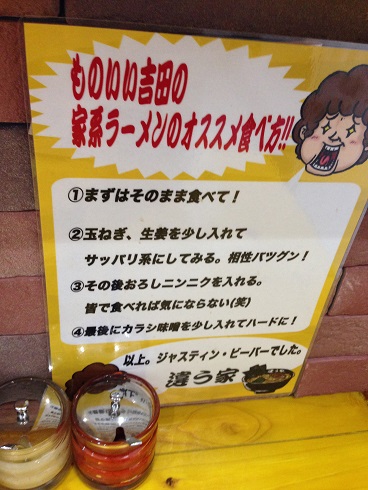 ものいい吉田の
家系ラーメンのオススメ食べ方!!
①まずはそのまま食べて！
②玉ねぎ、生姜を少し入れて
サッパリ系にしてみる。相性バツグン！
③その後おろしニンニクを入れる。
皆で食べれば気にならない(笑)
④最後にカラシ味噌を少し入れてハードに！
以上。ジャスティン・ビーバーでした。
違う家